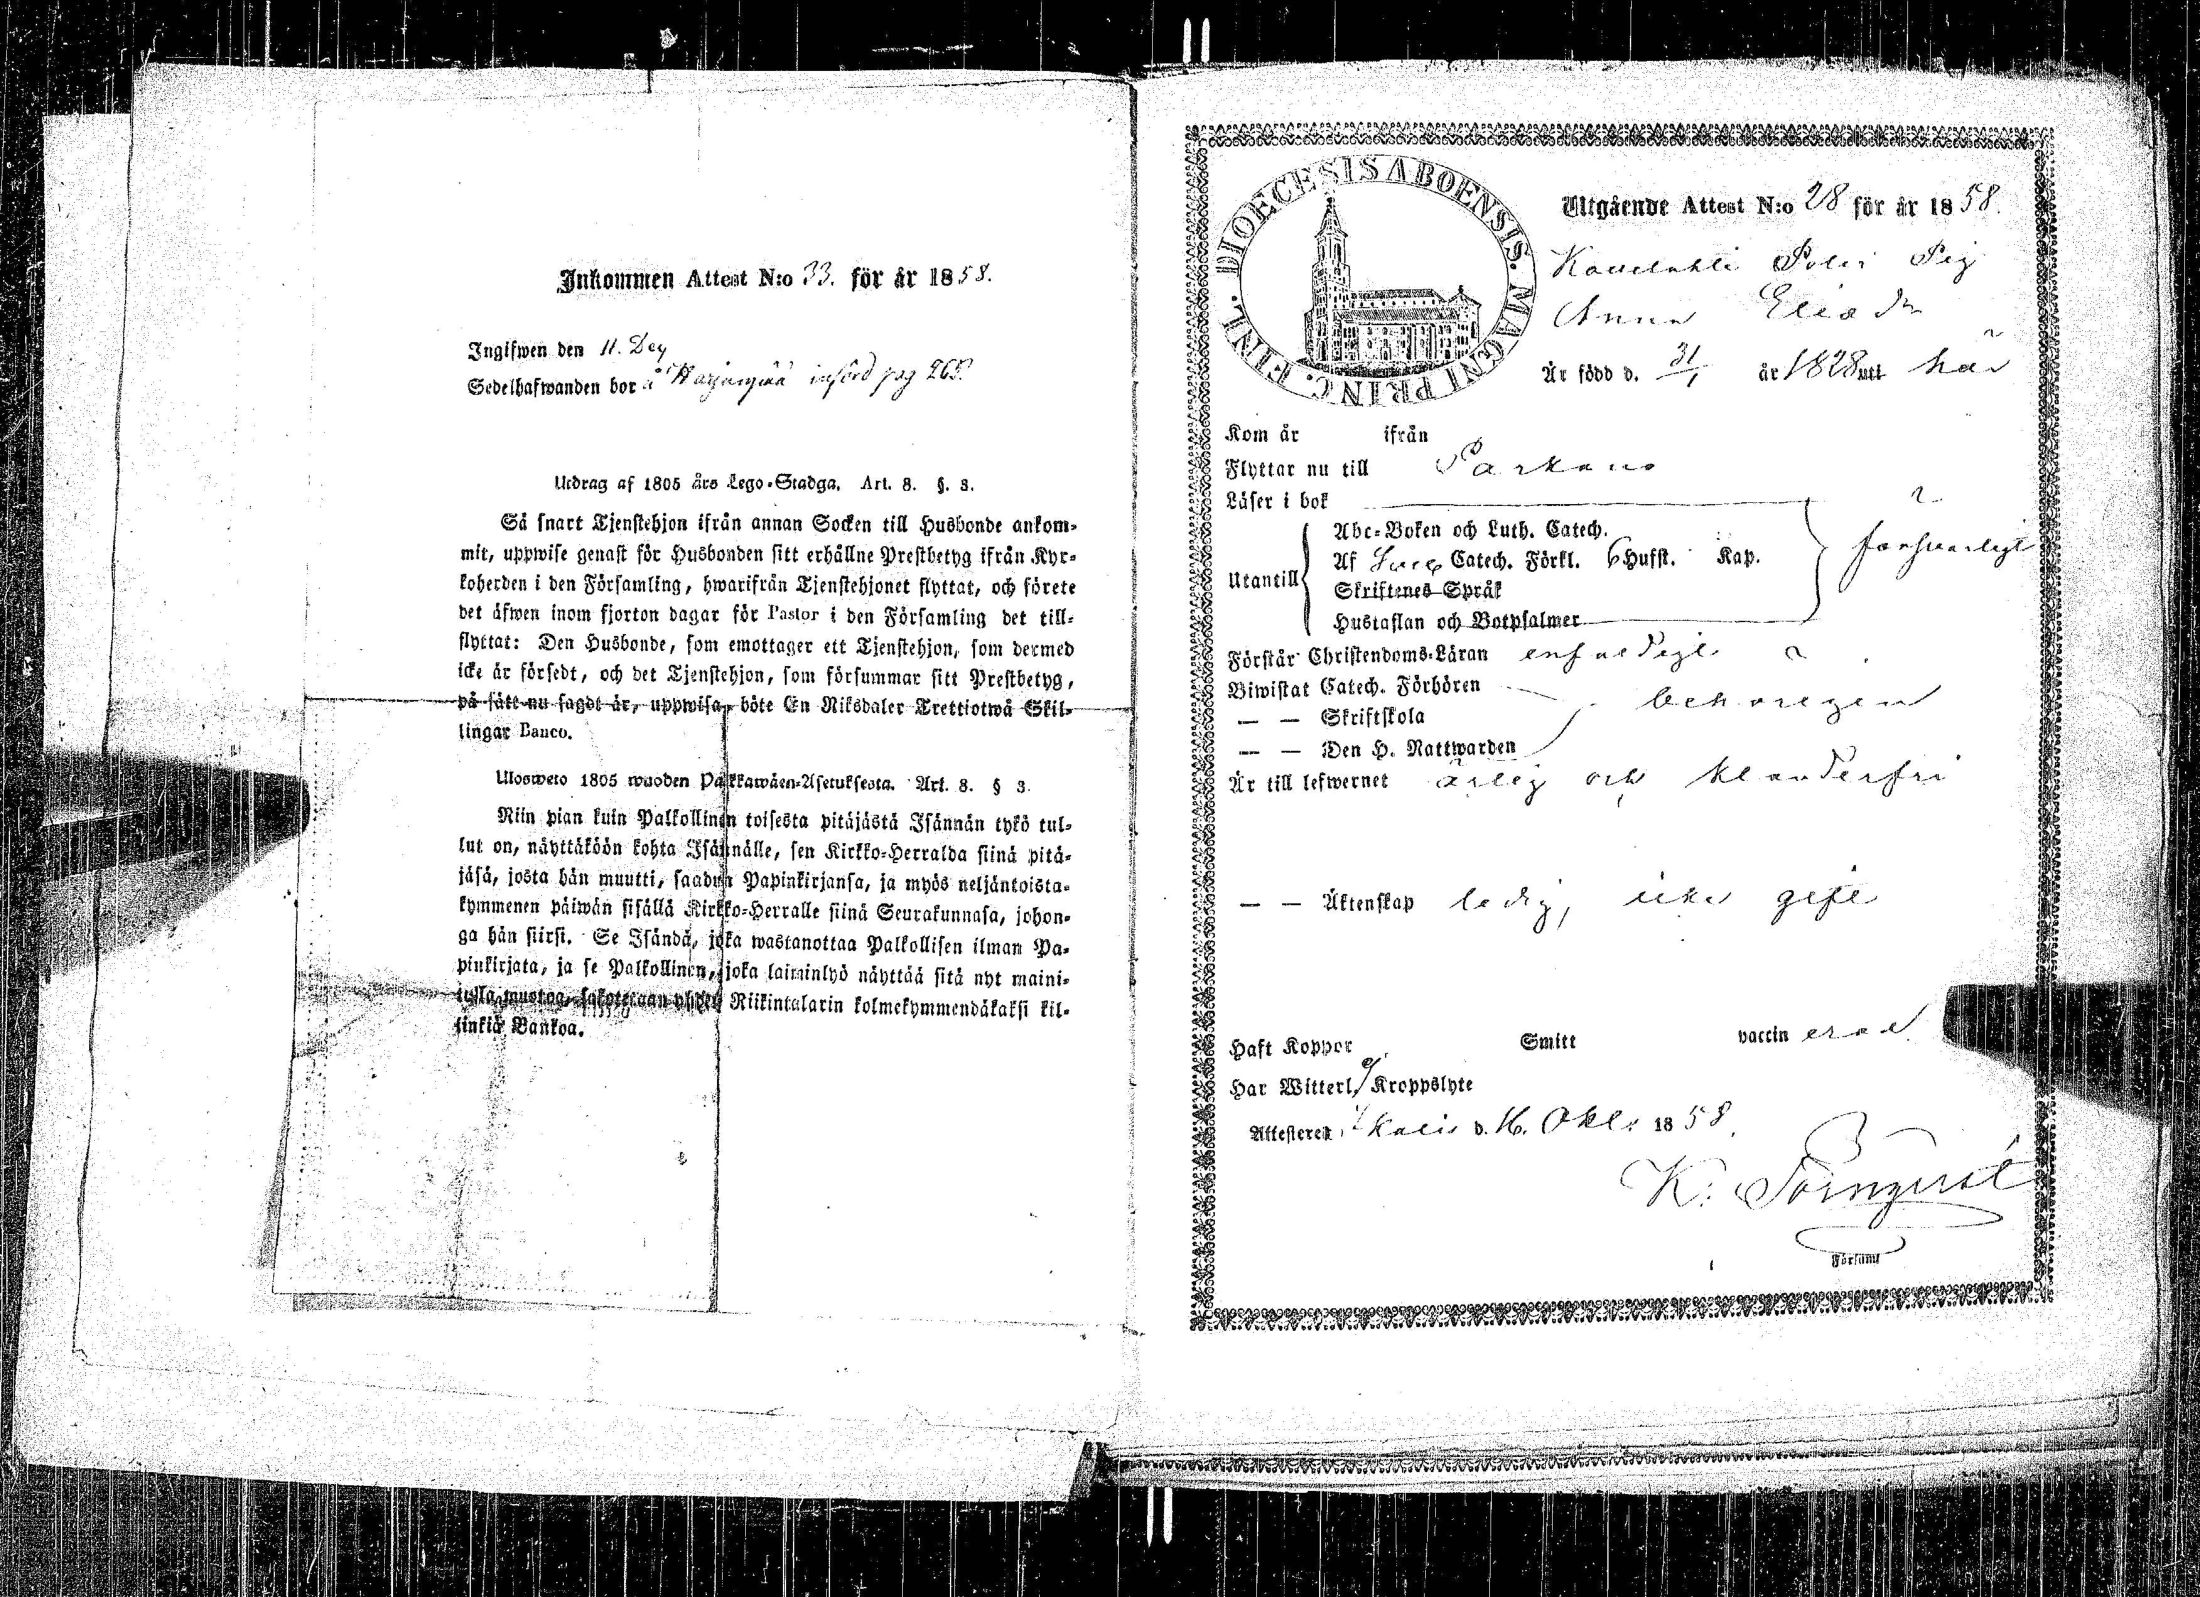 Inkommen Attest N:o 33. för år 1858.
Ingifwen den 11. Dec
Sedelhafwanden bor å Harjanpää införd pag 265.
Utdrag af 1805 års Lego-Stadga. Art. 8. §. 3.
Så snart Tjenstehjon ifrån annan Socken till Husbonde ankom-
mit, uppwise genast för Husbonden sitt erhållne Prestbetyg ifrån Kyr-
koherden i den Församling, hwarifrån Tjenstehjonet flyttat, och förete
det äfwen inom fjorton dagar för Pastor i den Församling det till-
flyttat: Den Husbonde, som emottager ett Tjenstehjon, som dermed
icke är försedt, och det Tjenstehjon, som försummar sitt Prestbetyg,
på sätt nu sagdt är, uppwisa, böte En Riksdaler Trettiotwå Skil-
lingar Banco.
Ulosweto 1805 wuoden Palkkawäen-Asetuksesta. Art. 8. § 3.
Niin pian kuin Palkollinen toisesta pitäjästä Isännän tykö tul-
lut on, näyttäköön kohta Isännälle, sen Kirkko-Herralda siinä pitä-
jäsä, josta hän muutti, saadun Papinkirjansa, ja myös neljäntoista-
kymmenen päiwän sisällä Kirkko-Herralle siinä Seurakunnasa, johon-
ga hän siirsi. Se Isändä, joka wastanottaa Palkollisen ilman Pa-
pinkirjata, ja se Palkollinen, joka laiminlyö näyttää sitä nyt maini-
tulla muotoa, sakotetaan yhden Riikintalarin kolmekymmendäkaksi kil-
linkiä Bankoa.
DIOECESIS ABOENSIS. MAGNI PRINC. FINL.
Utgående Attest N:o 28 för år 1858.
Pig
Anna Elias dr
Är född d. 31/1 år 1828 uti här
Kom år ifrån
Flyttar nu till Parkano
Läser i bok
Abc-Boken och Luth. Catech.
Utantill Af Sveb Catech. Förkl. 6 Hufst. Kap. försvarligt
Skriftenes Språk
Hustaflan och Botpsalmer
Förstår Christendoms-Läran enfaldigt
Biwistat Catech. Förhören
behörigen
— — Skriftskola
— — Den H. Nattwarden
Är till lefwernet ärlig och klanderfri
— — Äktenskap ledig, icke gift
Haft Koppor Smitt vaccin erad
Har Witterl. Kroppslyte
Attesterar, Ikalis d. 16. Oktr 1858.
K: Törnqvist
Församl